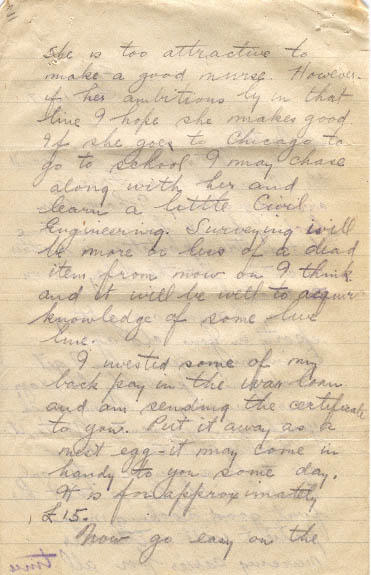 She is too attractive to
make a good nurse. However
if her ambitions ly in that
line I hope she makes good
If she goes to Chicago to
go to school I may chase
along with her and
learn a little Civil
Engineering. Surveying will
be more or less of a dead
item from now on I think
and it will be well to acquire
knowledge of some live
line.
I invested some of my
back pay in the war loan
and am sending the certificate
to you. Put it away as a
nest egg - it may come in
handy to you some day.
It is for approximately
£15.
Now go easy on the